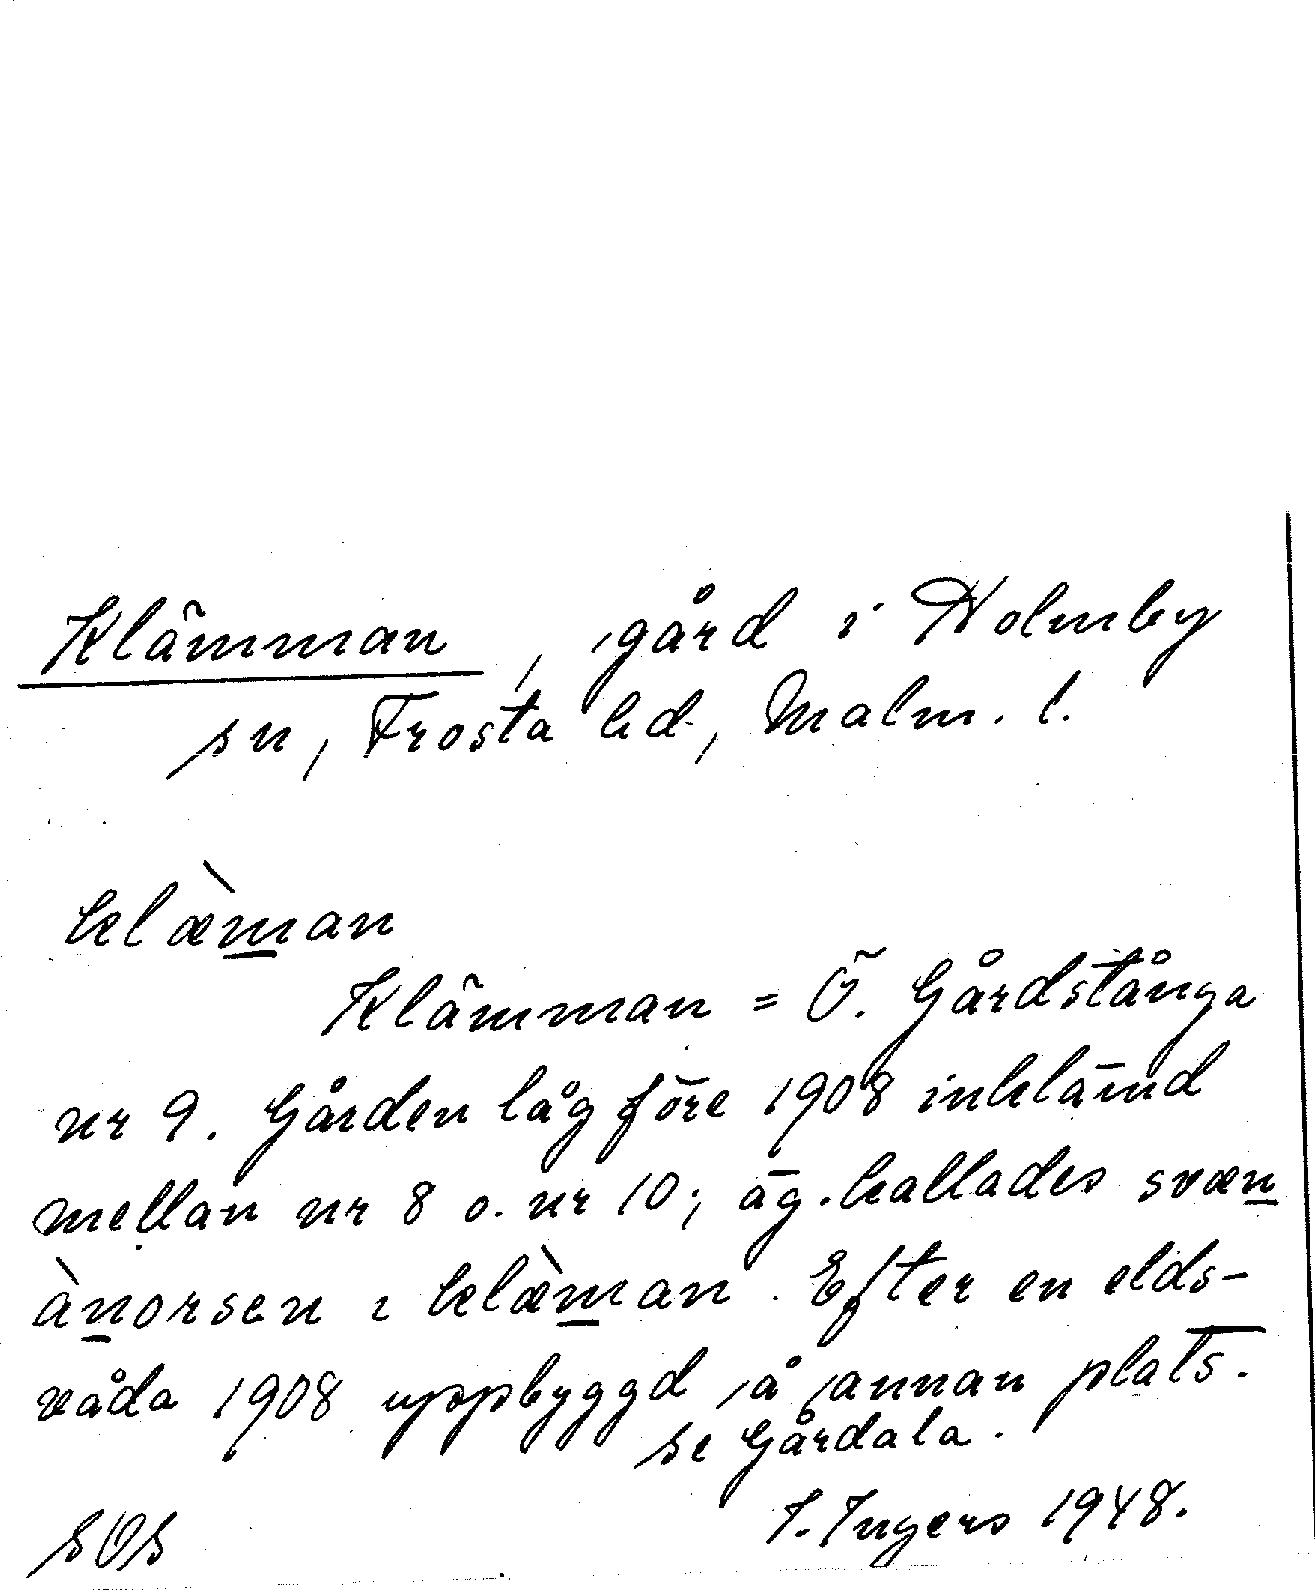 Klämman, gård i Holmby
sn, Frosta hd, Malm. l.
klæ̀man
Klämman = Ö. Gårdstånga
nr 9. Gården låg före 1908 inklämd
mellan nr 8 o. nr 10; äg. kallades svæn
ànorsen ı klæ̀man. Efter en elds-
våda 1908 uppbyggd å annan plats.
se Gårdala.
I. Ingers 1948.
SOS